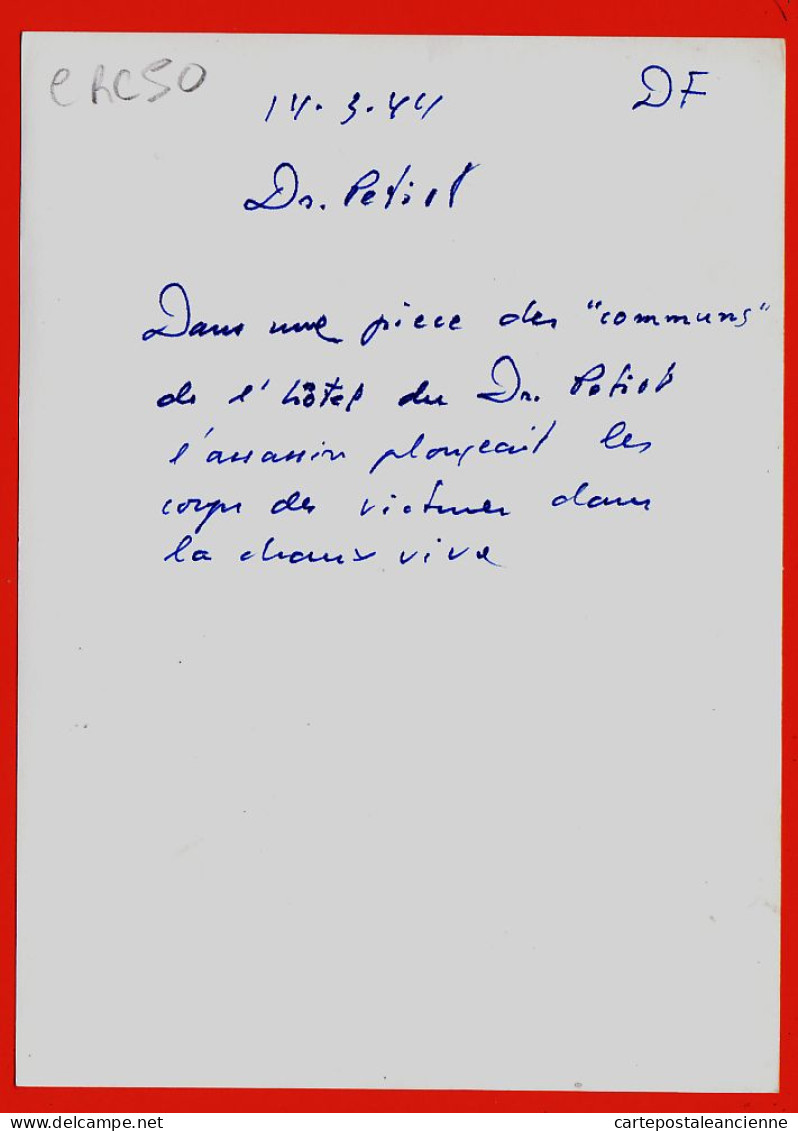 14.3.44 DF
Dr. Petiot
Dans une piece des "communs"
de l'hôtel du Dr. Petiot
l'assassin plongeait les
corps des victimes dans
la chaux vive
delcampe.net
cartepostaleancienne